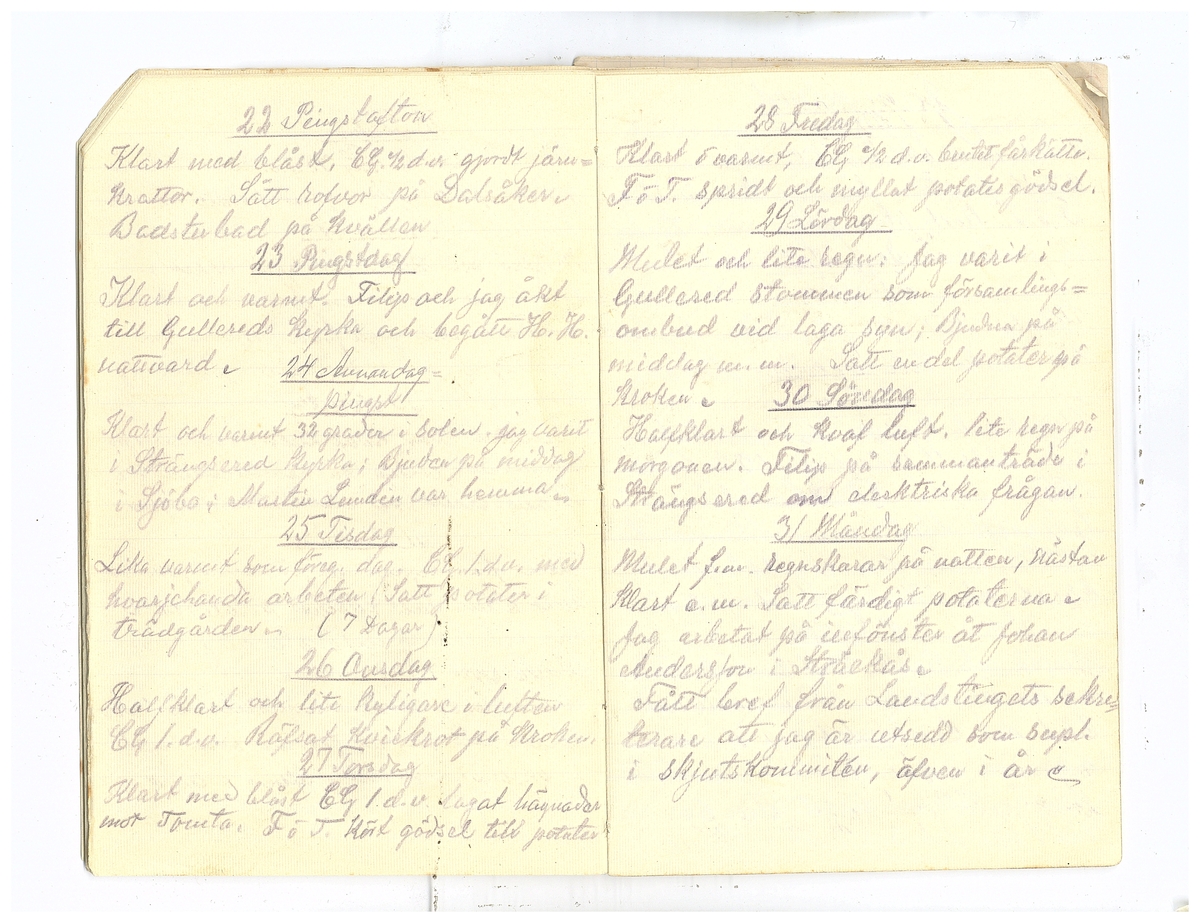 22 Pingstafton
Klart med blåst. CG. 1/2 d.v. gjordt järn=
krattor. Sått rofvor på Dalsåker.
Badstubad på kvällen
23 Pingstdag
Klart och varmt. Filip och jag åkt
till Gullereds kyrka och begått H. H.
nattvard.
24 Annandag=
pingst
Klart och varmt 32 grader i solen. jag varit
i Strängsered kyrka; Bjuden på middag
i Sjöbo; Martin Lundin var hemma.
25 Tisdag
Lika varmt som föreg. dag. CG. 1.d.v. med
hvarjehanda arbeten; Satt potater i
trädgården. (7 Dagar)
26 Onsdag
Halfklart och lite kyligare i luften
CG 1.d.v. Räfsat kvickrot på Kroken.
27 Torsdag
Klart med blåst CG 1.d.v. lagat hägnader
mot Tomta. F o T. kört gödsel till potater
28 Fredag
Klart o varmt, CG 1/2 d.v. fårkätte.
F o T. spridt och myllat potatisgödsel.
29 Lördag
Mulet och lite regn: Jag varit i
Gullered stommen som församlings=
ombud vid laga syn; Bjudna på
middag m.m. Satt en del potater på
Kroken.
30 Söndag
Halfklart och kvaf luft. lite regn på
morgonen. Filip på sammanträde i
Strängsered om elektriska frågan.
31 Måndag
Mulet f.m. regnskurar på natten, nästan
klart e.m. Satt färdigt potaterna.
Jag arbetat på innfönster åt Johan
Andersson i Stråckås.
Fått bref från Landstingets sekre=
terare att jag är utsedd som supl.
i skjutskommitén, äfven i år